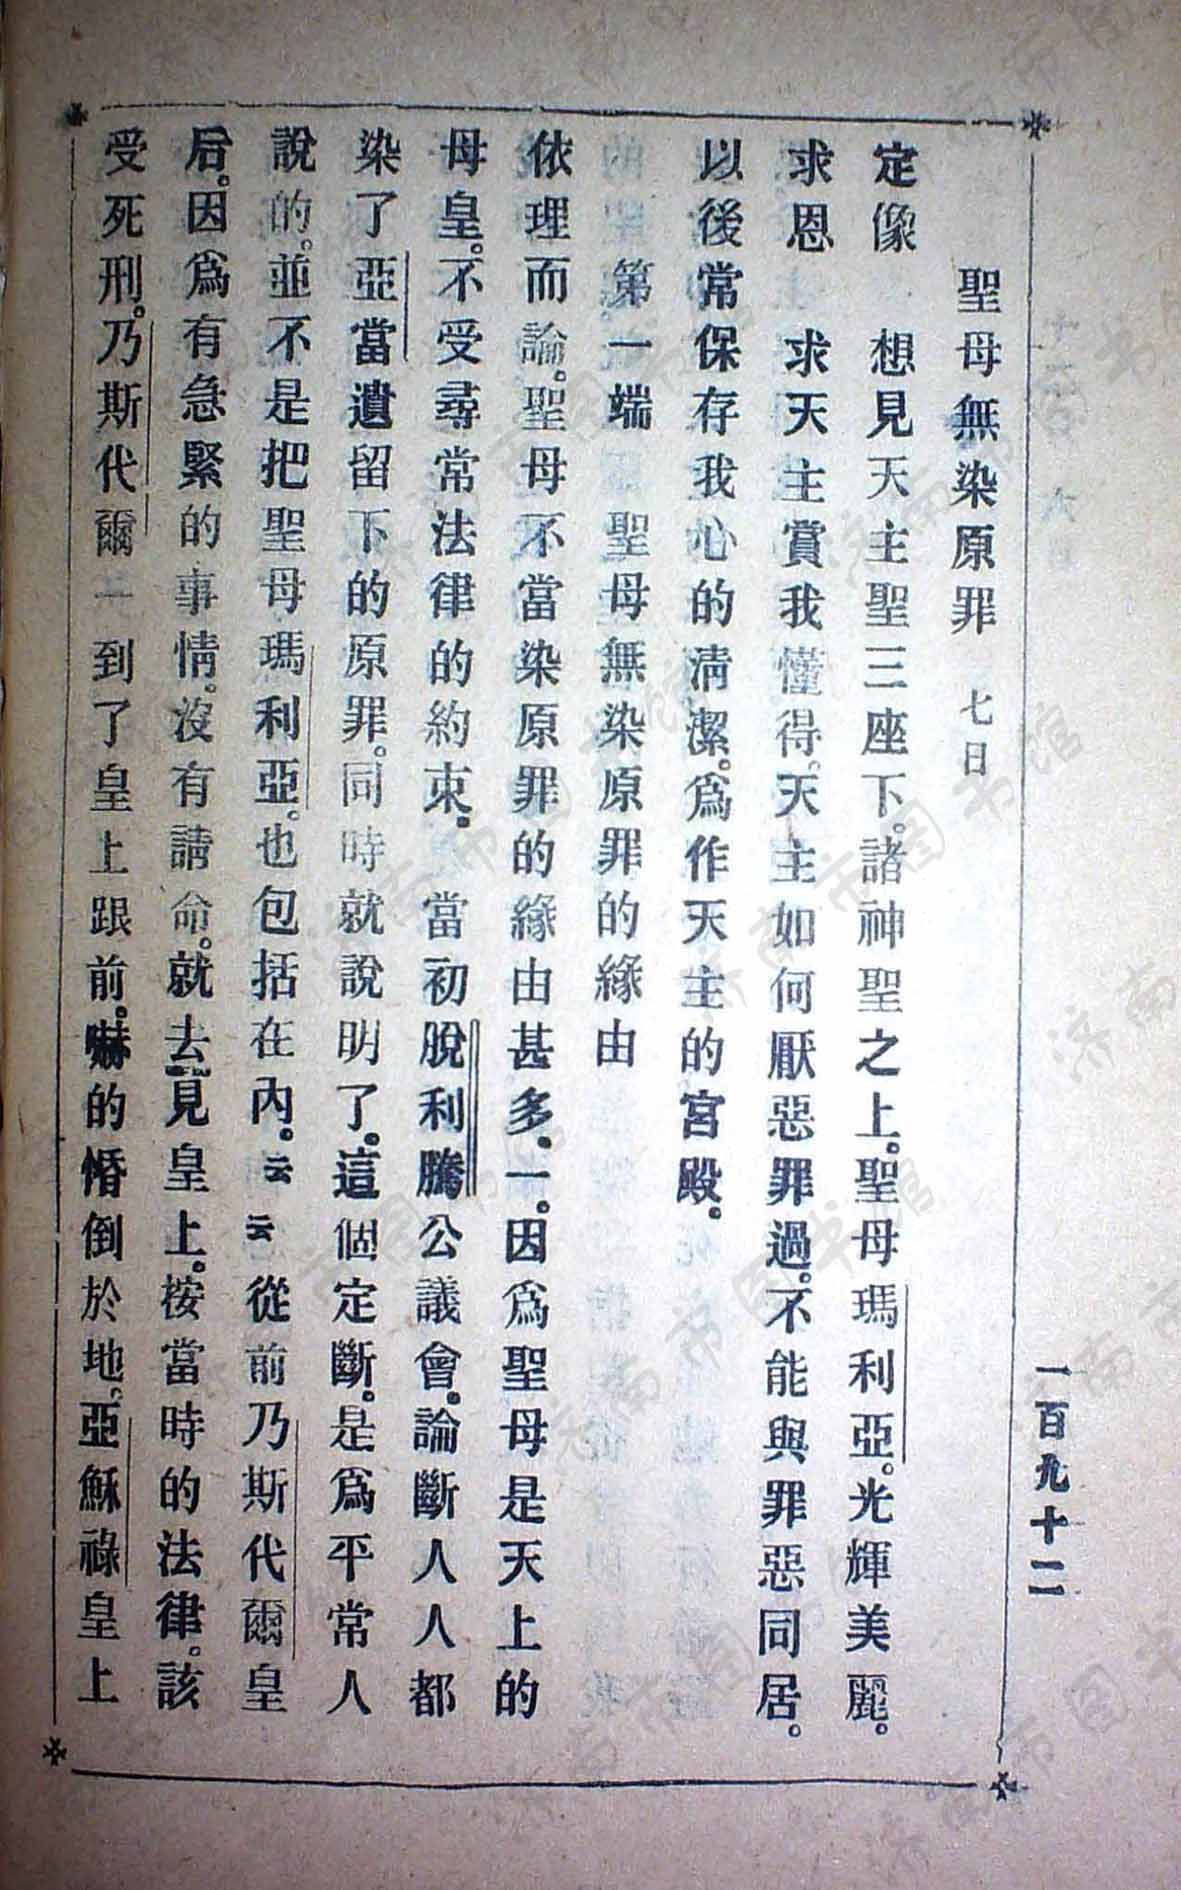 一百九十二
聖母無染原罪 七日
定像 想見天主聖三座下。諸神聖之上。聖母瑪利亞。光輝美麗。
求恩 求天主賞我懂得。天主如何厭惡罪過。不能與罪惡同居。
以後常保存我心的淸潔。爲作天主的宮殿。
第一端 聖母無染原罪的緣由
依理而論。聖母不當染原罪的緣由甚多、一。因爲聖母是天上的
母皇。不受尋常法律的約束。當初脫利騰公議會。論斷人人都
染了亞當遺留下的原罪。同時就說明了。這個定斷。是爲平常人
說的。並不是把聖母瑪利亞。也包括在內。云云從前乃斯代爾皇
后。因爲有急緊的事情。沒有請命。就去見皇上。按當時的法律。該
受死刑。乃斯代爾一到了皇上跟前。嚇的惛倒於地。亞穌祿皇上
济南市图书馆